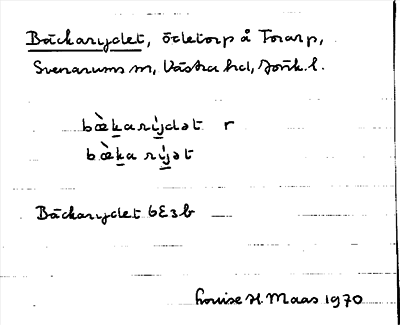 Bäckarydet, ödetorp å Torarp,
Svenarums sn, Västra hd, Jönk. l.
bæ̀karýdət r
bæ̀ka rýət
Bäckarydet 6E3b
Louise H. Maas 1970